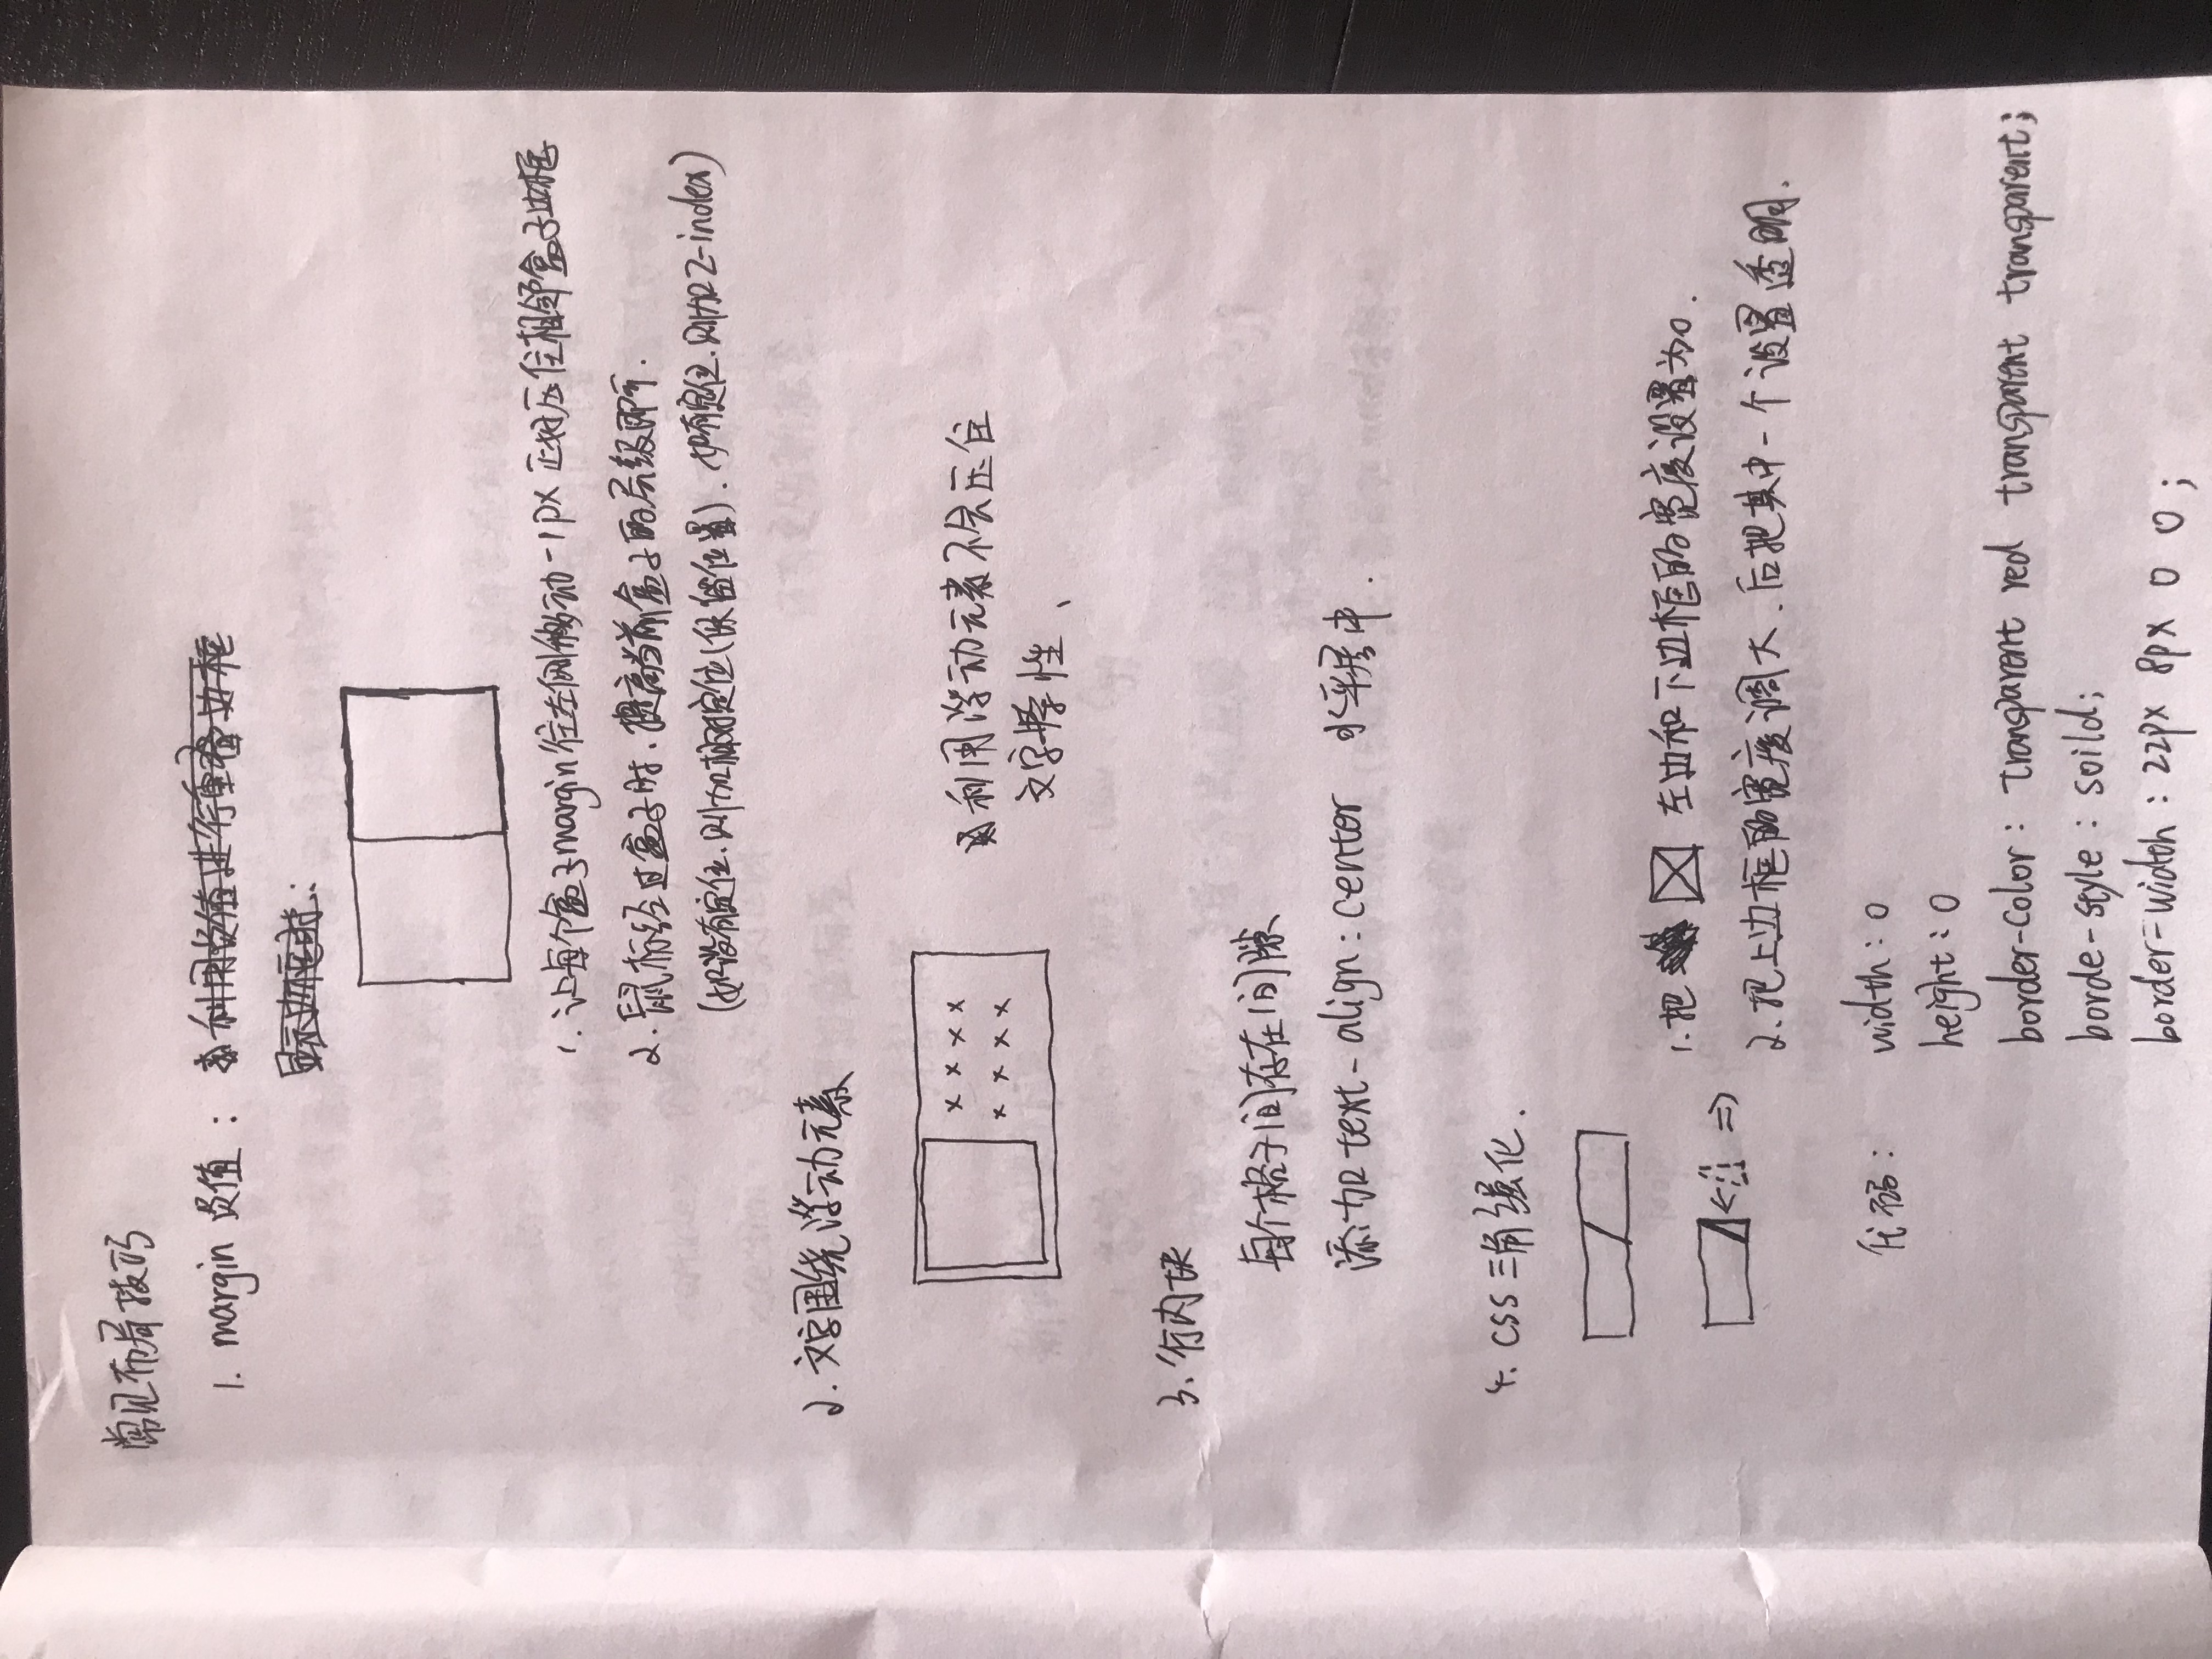 常见布局技巧
1. margin 负值：利用负值进行重叠边框
显示边框时：
1. 让每个盒子margin往左侧移动-1px 正好压住相邻盒子边框
2. 鼠标经过盒子时、提高当前盒子的层级即可.
(如没有定位、则加相对定位(保留位置)、如有定位、则加z-index)
2. 文字围绕浮动元素
x x x x
x x x x
利用浮动元素不会压住
文字特性、
3、行内块
每个格子间存在间隙
添加text-align:center 水平居中.
4. CSS三角强化.
1.把 左边和下边框的宽度设置为0.
2.把上边框的宽度调大、后把其中一个设置透明.
代码： width: 0
height: 0
border-color: transparent red transparent transparent;
borde-style: soild;
border-width: 22px 8px 0 0;